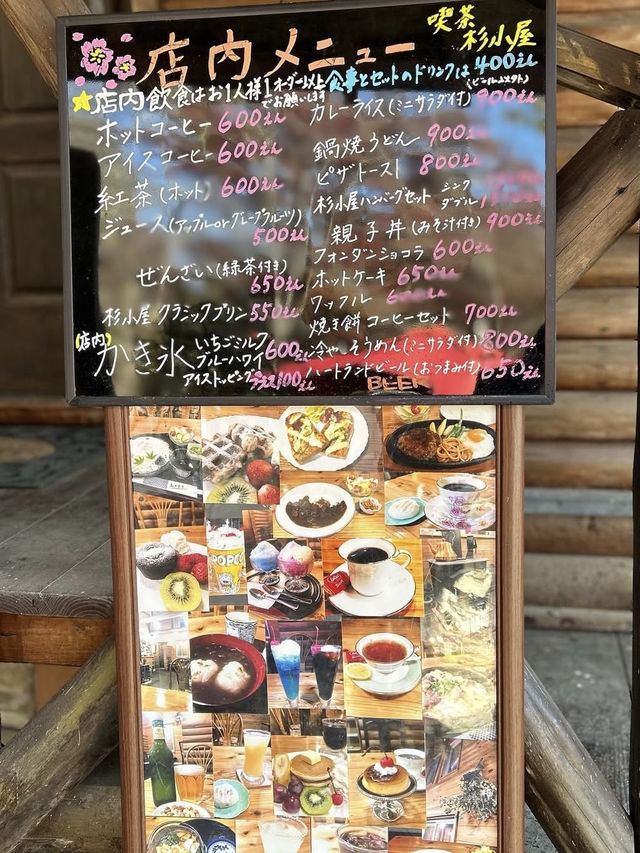 店内メニュー
喫茶
杉小屋
★店内飲食はお1人様1オーダー以上
でお願いします
食事とセットのドリンクは400えん
ホットコーヒー 600えん
アイスコーヒー 600えん
紅茶(ホット) 600えん
ジュース(アップルorグレープフルーツ)
500えん
ぜんざい(緑茶付き)
650えん
杉小屋クラシックプリン 550えん
店内
かき氷
いちごミルク
ブルーハワイ
600えん
アイストッピング プラス100えん
カレーライス(ミニサラダ付) 900えん
鍋焼うどん 900えん
ピザトースト 800えん
杉小屋ハンバーグセット
シングル
ダブル
親子丼(みそ汁付き) 900えん
フォンダンショコラ 600えん
ホットケーキ 650えん
ワッフル
焼き餅コーヒーセット 700えん
冷やそうめん(ミニサラダ付) 800えん
ハートランドビール(おつまみ付) 650えん
BEER